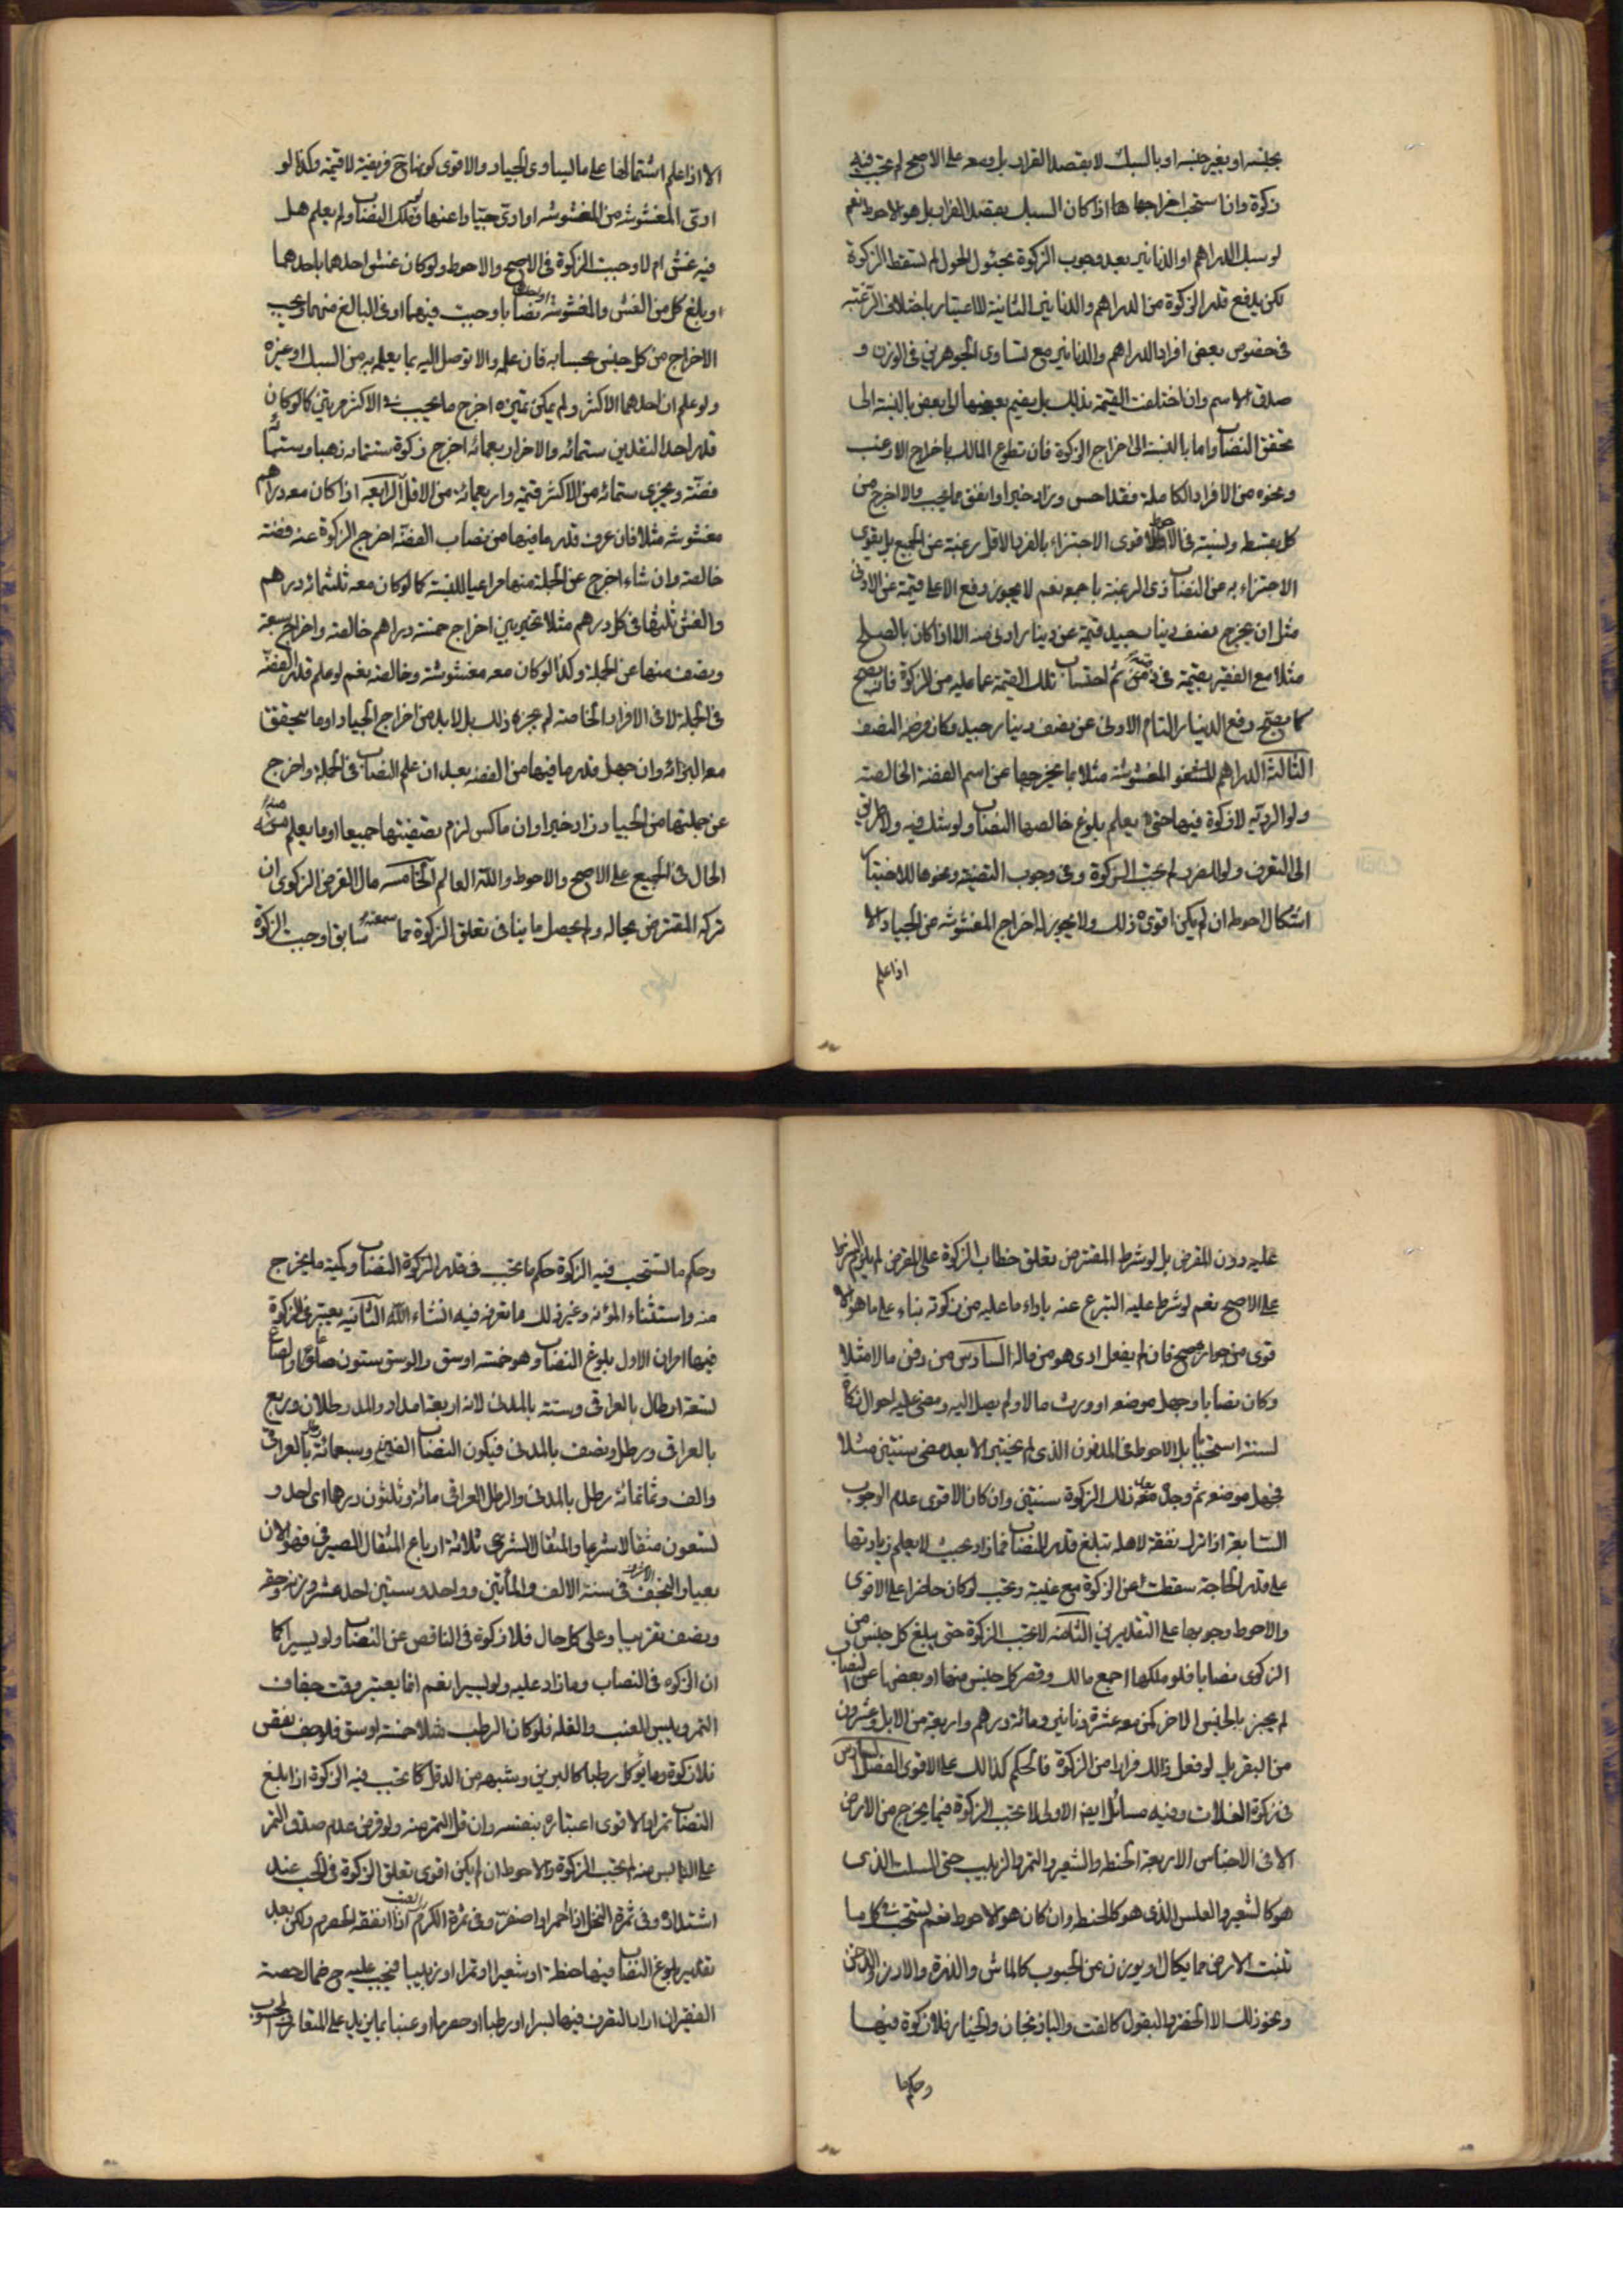 بجنسه او بغير جنسه او بالسبك لا بقصد الفرار بل ومعه على الاصح لم تجب فيه
زكوة وان استحب اخراجها اذا كان السبك بقصد الفرار بل هو الاحوط نعم
لو سبك الدراهم او الدنانير بعد وجوب الزكوة بحئول الحول لم تسقط الزكوة
لكن يدفع قدر الزكوة من الدراهم والدنانير الثانية لا اعتبار باختلاف الرغبة
فى خصوص بعض افراد الدراهم والدنانير مع تساوى الجوهرين فى الوزن و
صدق الاسم وان اختلفت القيمة بذلك بل يضم بعضها الى بعض بالنسبة الى
تحقق النصاب واما بالنسبة الى اخراج الزكوة فان تطوع المالك باخراج الارغب
ونحوه من الافراد الكاملة فقد احسن وزاد خيرا وانفق مما يحب والا اخرج من
كل بقسط ونسبته فى الاحوط الاقوى الاجتزاء بالفرد الاقل رغبة عن الجميع بل يقوى
الاجتزاء به عن النصاب ذى الرغبة باجمعه نعم لا يجوز دفع الاعلى قيمة عن الادنى
مثل ان يخرج نصف دينار جيد قيمة عن دينار ادنى منه الا اذا كان بالصلح
مثلا مع الفقير بقيمة فى ذمته ثم احتساب تلك القيمة عما عليه من الزكوة فانه يصح
كما يصح دفع الدينار التام الادنى عن نصف دينار جيد وكان فرضه النصف
الثالثة الدراهم المغشوشة مثلا بما يخرجها عن اسم الفضة الخالصة
ولو الردية لا زكوة فيها حتى يعلم بلوغ خالصها النصاب ولو شك فيه ولا طريق
الى التعرف ولو للضرر لم تجب الزكوة وفى وجوب التصفية ونحوها للاختبار
اشكال احوطه ان لم يكن اقوى ذلك ولا يجوز له اخراج المغشوشة عن الجياد الا
اذا علم
الا اذا علم اشتمالها على ما يساوى الجياد والاقوى كونها ح فريضة لا قيمة وكذا لو
ادى المغشوشة من المغشوشه او ادى جيادا عنها ولو ملك النصاب ولم يعلم هل
فيه غش ام لا وجبت الزكوة فى الاصح والاحوط ولو كان غش احدهما باحدهما
او بلغ كل من الغش والمغشوشه نصابا وجبت فيهما او فى البالغ منهما ويجب
الاخراج من كل جنس بحسابه فان علمه والا توصل اليه بما يعلم به من السبك او غيره
ولو علم ان احدهما الاكثر ولم يمكن تميزه اخرج ما يجب فى الاكثر مرتين كما لو كان
قدر احد النقدين ستمائه والاخر اربعمائه اخرج زكوة ستمائه ذهبا وستمائة
فضة ويجزى ستمائه من الاكثر قيمة واربعمائة من الاقل الرابعه اذا كان معه دراهم
مغشوشه مثلا فان عرف قدر ما فيها من نصاب الفضة اخرج الزكوة عنه فضة
خالصة وان شاء اخرج عن الجملة منها مراعيا للنسبة كما لو كان معه ثلثمائه درهم
والغش ثلثها فى كل درهم مثلا تخير بين اخراج خمسة دراهم خالصة واخراج سبعة
ونصف منها عن الجملة وكذا لو كان معه مغشوشة وخالصة نعم لو علم قدر الفضة
فى الجملة لا فى الافراد الخاصة لم يجزه ذلك بل لا بد من اخراج الجياد او ما يتحقق
معه البرائه وان جهل قدر ما فيها من الفضه بعد ان علم النصاب فى الجملة واخرج
عن جملتها من الجياد زاد خيرا وان ماكس لزم تصفيتها جميعا او ما يعلم منه
الحال فى الجميع على الاصح والاحوط والله العالم الخامسه مال القرض الزكوى ان
تركه المقترض بحاله ولم يحصل ما ينافى تعلق الزكوة مما سمعته سابقا وجبت الزكوة
عليه دون المقرض بل لو شرط المقترض تعلق خطاب الزكوة على المقرض لم يلزم الشرط
على الاصح نعم لو شرط عليه التبرع عنه باداء ما عليه من زكوته بناء على ما هو الا
قوى من جوازه صح فان لم يفعل ادى هو من ماله السادس من دفن مالا مثلا
وكان نصابا وجهل موضعه او ورث مالا ولم يصل اليه ومضى عليه احوال زكاه
لسنة استحبابا بل الاحوط فى المدفون الذى لم يختبر الا بعد مضى سنتين مثلا
فجهل موضعه ثم وجده بعد ذلك الزكوة سنتين وان كان الاقوى عدم الوجوب
السابعة اذا ترك نفقة لاهله تبلغ قدر النصاب فما زاد بحيث لا يعلم زيادتها
على قدر الحاجة سقطت عنه الزكوة مع غيبته وتجب لو كان حاضرا على الاقوى
والاحوط وجوبها على التقديرين الثامنه لا تجب الزكوة حتى يبلغ كل جنس من
الزكوى نصابا فلو ملكها اجمع مالك وقصر كل جنس منها او بعضها عن النصاب
لم يجبر بالجنس الاخر كمن معه عشرة دنانير ومائة درهم واربعة من الابل وعشرون
من البقر بل لو فعل ذلك فرارا من الزكوة فالحكم كذلك على الاقوى الفصل السادس
فى زكوة الغلات وفيه مسائل ايضا الاولى لا تجب الزكوة فيما يخرج من الارض
الا فى الاجناس الاربعة الحنطة والشعير والتمر والزبيب حتى السلت الذى
هو كالشعير والعلس الذى هو كالحنطة وان كان هو الاحوط نعم تستحب فى كل ما
تنبت الارض مما يكال او يوزن من الحبوب كالماش والذرة والارز والدخن
ونحو ذلك الا الخضر والبقول كالقت والباذنجان والخيار فلا زكوة فيها
وحكم ما
وحكم ما تستحب فيه الزكوة حكم ما تجب فى قدر الزكوة النصاب وكمية ما يخرج
منه واستثناء المؤنه وغير ذلك ما تعرفه فيه انشاء الله الثانيه يعتبر فى الزكوة
فيها امران الاول بلوغ النصاب وهو خمسة اوسق والوسق ستون صاعا والصاع
تسعة ارطال بالعراقى وستة بالمدنى لانه اربعة امداد والمد رطلان وربع
بالعراقى ورطل ونصف بالمدنى فيكون النصاب الفين وسبعمائة رطل بالعراقى
والف وثمانمائة رطل بالمدنى والرطل العراقى مائة وثلثون درهما اى احد و
تسعون مثقالا شرعيا والمثقال الشرعى ثلاثة ارباع المثقال الصيرفى فهو الان
بعيار النجف الاشرف فى سنة الالف والمأتين وواحد وستين احد عشر وزنه وحقه
ونصف تقريبا وعلى كل حال فلا زكوة فى الناقص عن النصاب ولو يسيرا كما
ان الزكوه فى النصاب وما زاد عليه ولو يسيرا نعم انما يعتبر وقت جفاف
التمر ويبس العنب والغله فلو كان الرطب مثلا خمسة اوسق فلو جف نقص
فلا زكوة وما يؤكل رطبا كالبربن وشبهه من الدقل كما تجب فيه الزكوة اذا بلغ
النصاب تمرا والاقوى اعتباره بنفسه وان قل التمر منه ولو فرض عدم صدق التمر
على اليابس منه لم تجب الزكوة والاحوط ان لم يكن اقوى تعلق الزكوة فى الحب عند
اشتداده وفى ثمرة النخل اذا احمر او اصفر وفى ثمرة الكرم اذا انعقد الحصرم ولكن بعد
تقدير بلوغ النصاب فيها حنطة او شعيرا او تمرا او زبيبا فيجب عليه ح ضمان حصة
الفقير ان اراد التصرف فيها بسرا او رطبا او حصرما او عنبا بما يزيد على المتعارف المحسوب